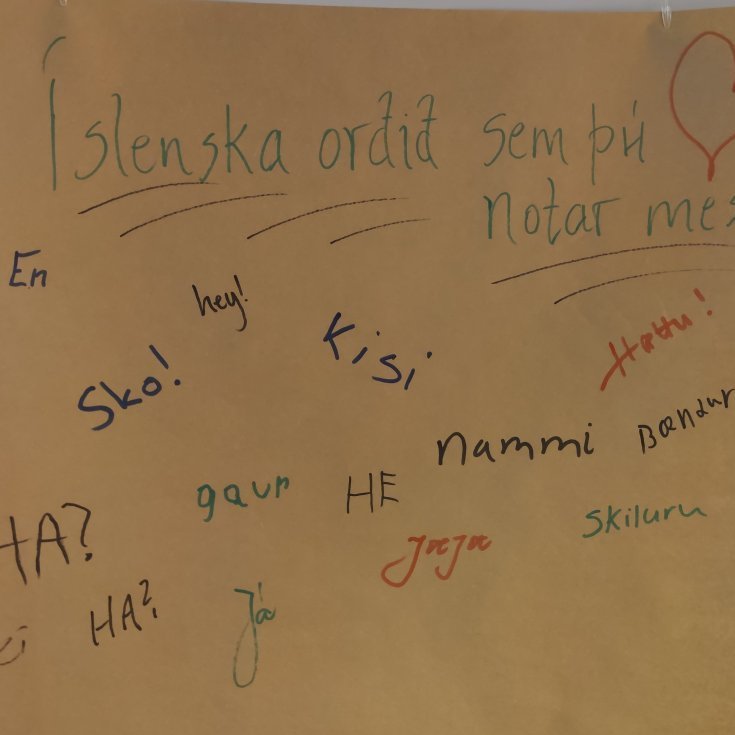 Íslenska orðið sem þú
notar mes
En
hey!
Sko!
Kisi
Hættu!
nammi
Bændur
gaur
HE
Skiluru
HA?
Jæja
HA?
Já